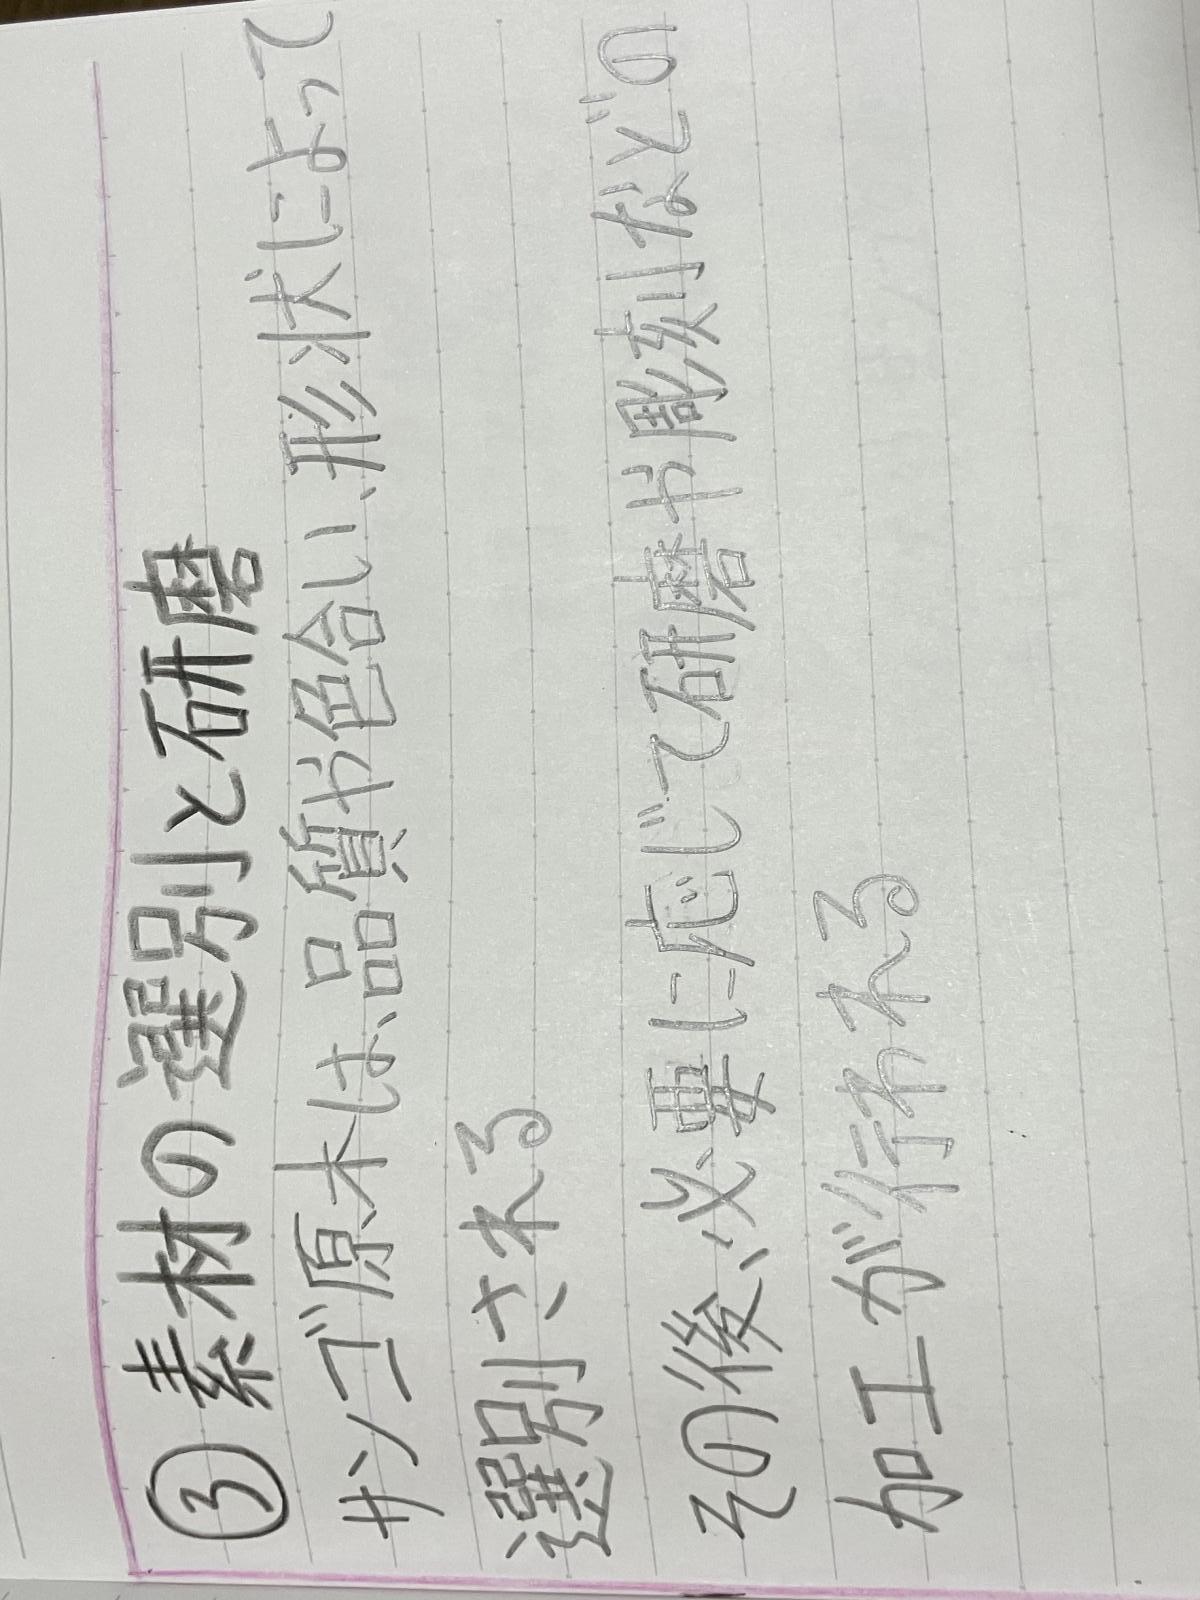 ③素材の選別と研磨
サンゴ原木は、品質や色合い、形状によって
選別される
その後、必要に応じて研磨や彫刻などの
加工が行われる